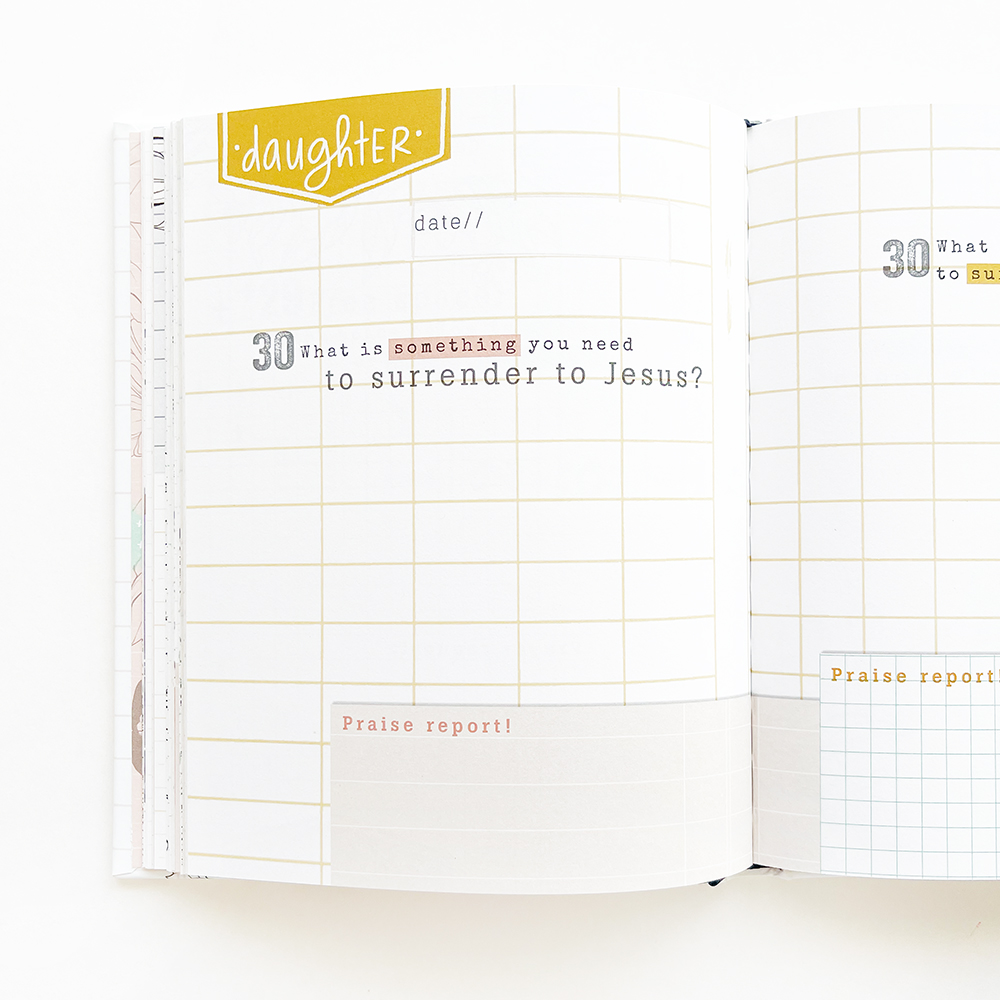 ·daughtER·
date//
30 What is something you need
to surrender to Jesus?
Praise report!
30 What
to
Praise report!